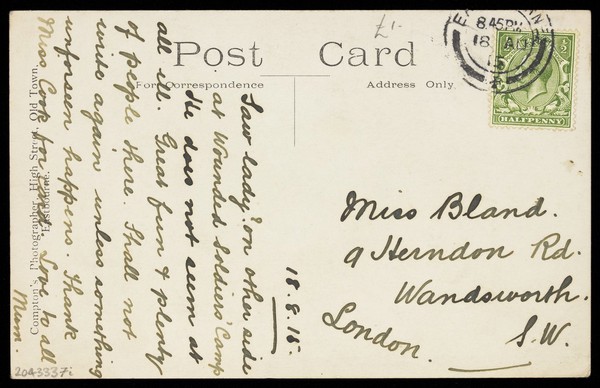 £1-
Post Card
For Correspondence
Address Only.
8.45PM
18 AU
15
HALFPENNY
Compton's, Photographer, High Street, Old Town,
Eastbourne.
18.8.15.
"Saw lady" on other side
at Wounded Soldiers' Camp
He does not seem at
all ill. Great fun & plenty
of people there. Shall not
write again unless something
unforseen happens. Thank
Miss Cook for card. Love to all
Mum.
Miss Bland.
9 Herndon Rd.
Wandsworth.
London. S.W.
2043337i